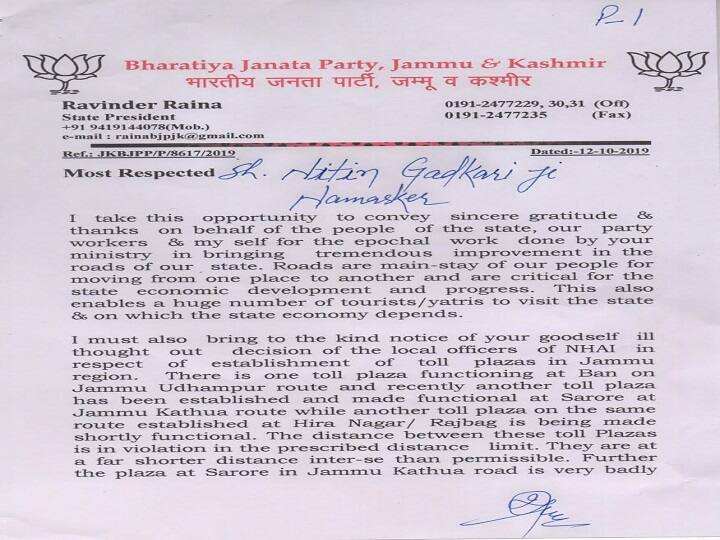 P-1
Bharatiya Janata Party, Jammu & Kashmir
भारतीय जनता पार्टी, जम्मू व कश्मीर
Ravinder Raina
State President
+91 9419144078(Mob.)
e-mail : rainabjpjk@gmail.com
0191-2477229, 30,31 (Off)
0191-2477235 (Fax)
Ref.: JKBJPP/P/8617/2019 Dated:-12-10-2019
Most Respected Sh. Nitin Gadkari Ji
Namasker
I take this opportunity to convey sincere gratitude &
thanks on behalf of the people of the state, our party
workers & my self for the epochal work done by your
ministry in bringing tremendous improvement in the
roads of our state. Roads are main-stay of our people for
moving from one place to another and are critical for the
state economic development and progress. This also
enables a huge number of tourists/yatris to visit the state
& on which the state economy depends.
I must also bring to the kind notice of your goodself ill
thought out decision of the local officers of NHAI in
respect of establishment of toll plazas in Jammu
region. There is one toll plaza functioning at Ban on
Jammu Udhampur route and recently another toll plaza
has been established and made functional at Sarore at
Jammu Kathua route while another toll plaza on the same
route established at Hira Nagar/ Rajbag is being made
shortly functional. The distance between these toll Plazas
is in violation in the prescribed distance limit. They are at
a far shorter distance inter-se than permissible. Further
the plaza at Sarore in Jammu Kathua road is very badly